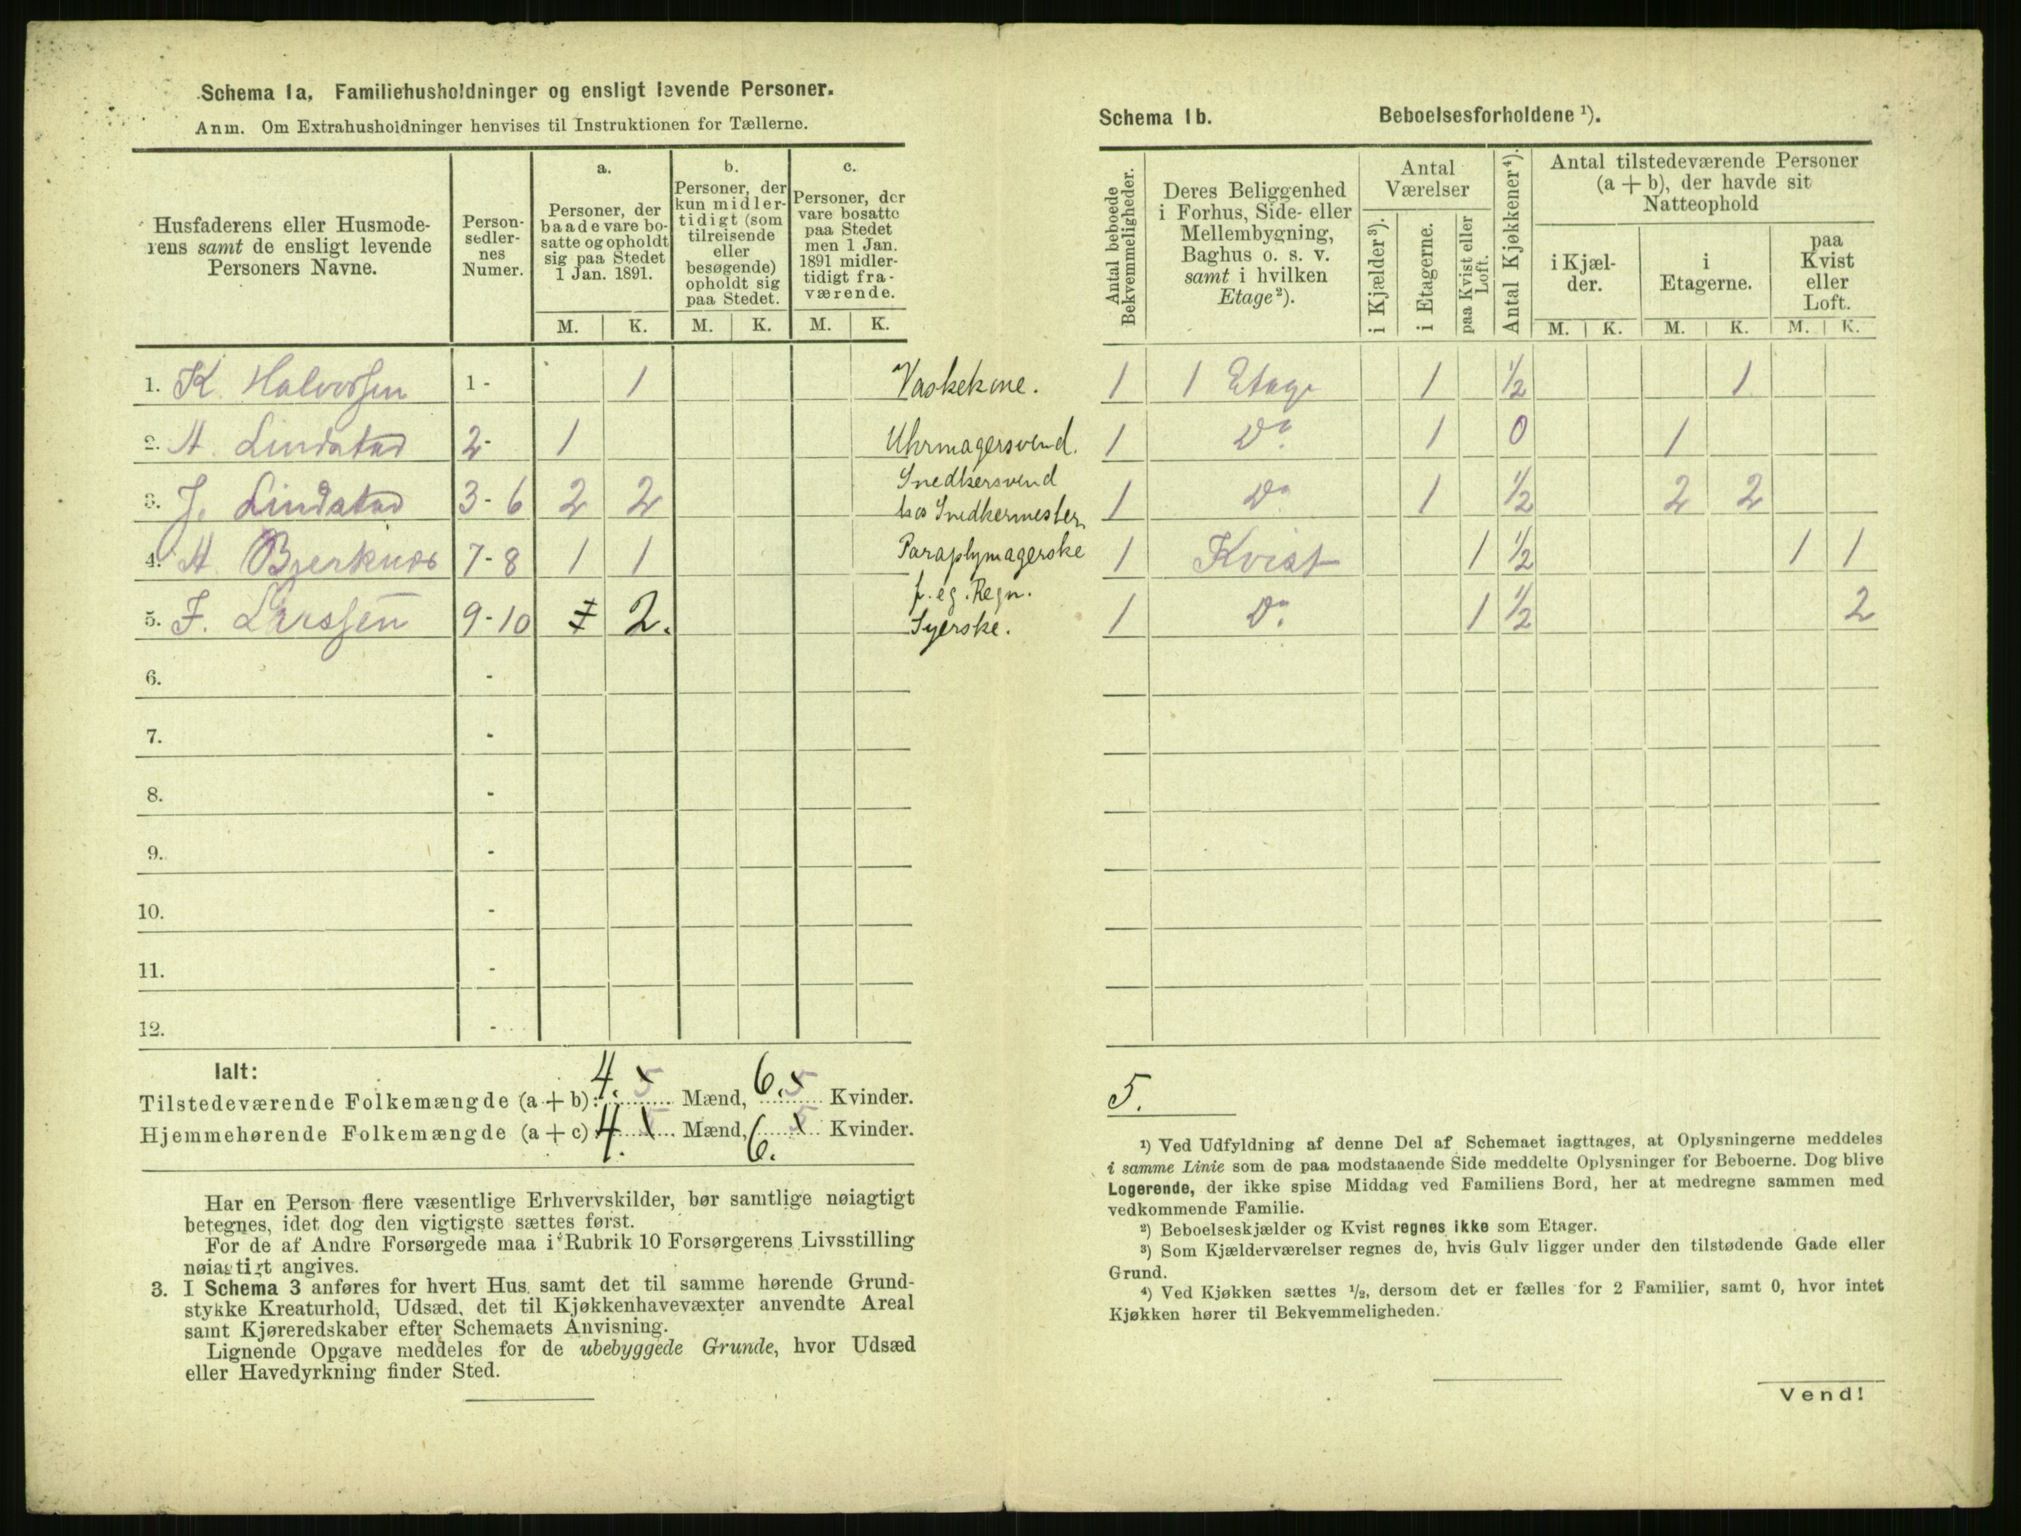 Schema 1a. Familiehusholdninger og ensligt levende Personer.
Anm. Om Extrahusholdninger henvises til Instruktionen for Tællerne.
Husfaderens eller Husmode-
rens samt de ensligt levende
Personers Navne.
Person-
sedler-
nes
Numer.
a.
Personer, der
baade vare bo-
satte og opholdt
sig paa Stedet
1 Jan. 1891.
b.
Personer, der
kun midler-
tidigt (som
tilreisende
eller
besøgende)
opholdt sig
paa Stedet.
c.
Personer, der
vare bosatte
paa Stedet
men 1 Jan.
1891 midler-
tidigt fra-
værende.
M. K. M. K. M. K.
1. K. Halvorsen 1 - 1 Vaskekone.
2. A. Lindstad 2 - 1 Uhrmagersvend.
3. J. Lindstad 3 - 6 2 2 Snedkersvend
hos Snedkermester
4. A. Bjerknes 7 - 8 1 1 Paraplymagerske
f. eg. Regn.
5. F. Larssen 9 - 10 2. Syerske.
6. -
7. -
8. -
9. -
10. -
11. -
12. -
Ialt:
Tilstedeværende Folkemængde (a + b): 4. 5 Mænd, 6. 5 Kvinder.
Hjemmehørende Folkemængde (a + c) 4. 5 Mænd, 6. 5 Kvinder.
Har en Person flere væsentlige Erhvervskilder, bør samtlige nøiagtigt
betegnes, idet dog den vigtigste sættes først.
For de af Andre Forsørgede maa i Rubrik 10 Forsørgerens Livsstilling
nøiagtigt angives.
3. I Schema 3 anføres for hvert Hus samt det til samme hørende Grund-
stykke Kreaturhold, Udsæd, det til Kjøkkenhavevæxter anvendte Areal
samt Kjøreredskaber efter Schemaets Anvisning.
Lignende Opgave meddeles for de ubebyggede Grunde, hvor Udsæd
eller Havedyrkning finder Sted.
Schema 1b. Beboelsesforholdene ¹).
Antal beboede
Bekvemmeligheder.
Deres Beliggenhed
i Forhus, Side- eller
Mellembygning,
Baghus o. s. v.
samt i hvilken
Etage²).
Antal
Værelser
i Kjælder³).
i Etagerne.
paa Kvist eller
Loft.
Antal Kjøkkener⁴).
Antal tilstedeværende Personer
(a + b), der havde sit
Natteophold
i Kjæl-
der.
i
Etagerne.
paa
Kvist
eller
Loft.
M. K. M. K. M. K.
1 1 Etage 1 ½ 1
1 Do. 1 0 1
1 Do 1 ½ 2 2
1 Kvist 1 ½ 1 1
1 Do 1 ½ 2
5.
¹) Ved Udfyldning af denne Del af Schemaet iagttages, at Oplysningerne meddeles
i samme Linie som de paa modstaaende Side meddelte Oplysninger for Beboerne. Dog blive
Logerende, der ikke spise Middag ved Familiens Bord, her at medregne sammen med
vedkommende Familie.
²) Beboelseskjælder og Kvist regnes ikke som Etager.
³) Som Kjælderværelser regnes de, hvis Gulv ligger under den tilstødende Gade eller
Grund.
⁴) Ved Kjøkken sættes ½, dersom det er fælles for 2 Familier, samt 0, hvor intet
Kjøkken hører til Bekvemmeligheden.
Vend!